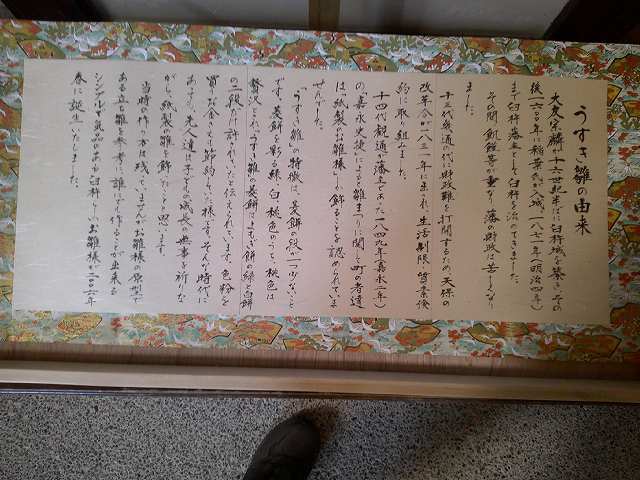 うすき雛の由来
大友宗麟が十六世紀半ばに臼杵城を築き、その
後一六〇〇年に稲葉氏が入城、一八七一年(明治四年)
まで臼杵藩主として臼杵を治めてきました。
その間、飢饉等が重なり、藩の財政は苦しくなり
ました。
十三代幾通の代に財政難を打開するため、天保の
改革令が一八三一年に出され、生活制限、質素倹
約に取り組みました。
十四代観通が藩主であった一八四九年(嘉永二年)
の「嘉永史徒」による雛まつりに関して町の者達
は「紙製のお雛様」しか飾ることを認められていま
せんでした。
「うすき雛」の特徴は、菱餅の段が一つ少ないこと
です。菱餅を彩る緑、白、桃色のうち、桃色は
贅沢とされ、うすき雛の菱餅はよもぎ餅の緑と白餅
の二段だけ許されていたと伝えられています。色粉を
買うお金までも節約した様です。そんな時代に
あっても、先人達は子ども成長の無事を祈りな
がら、紙製の雛を飾ったことと思います。
当時の作り方は残っていませんが、お雛様の原型で
ある立ち雛を参考に、誰にでも作ることが出来る
シンプルで気品のある臼杵らしいお雛様が二〇〇六年
春に誕生いたしました。